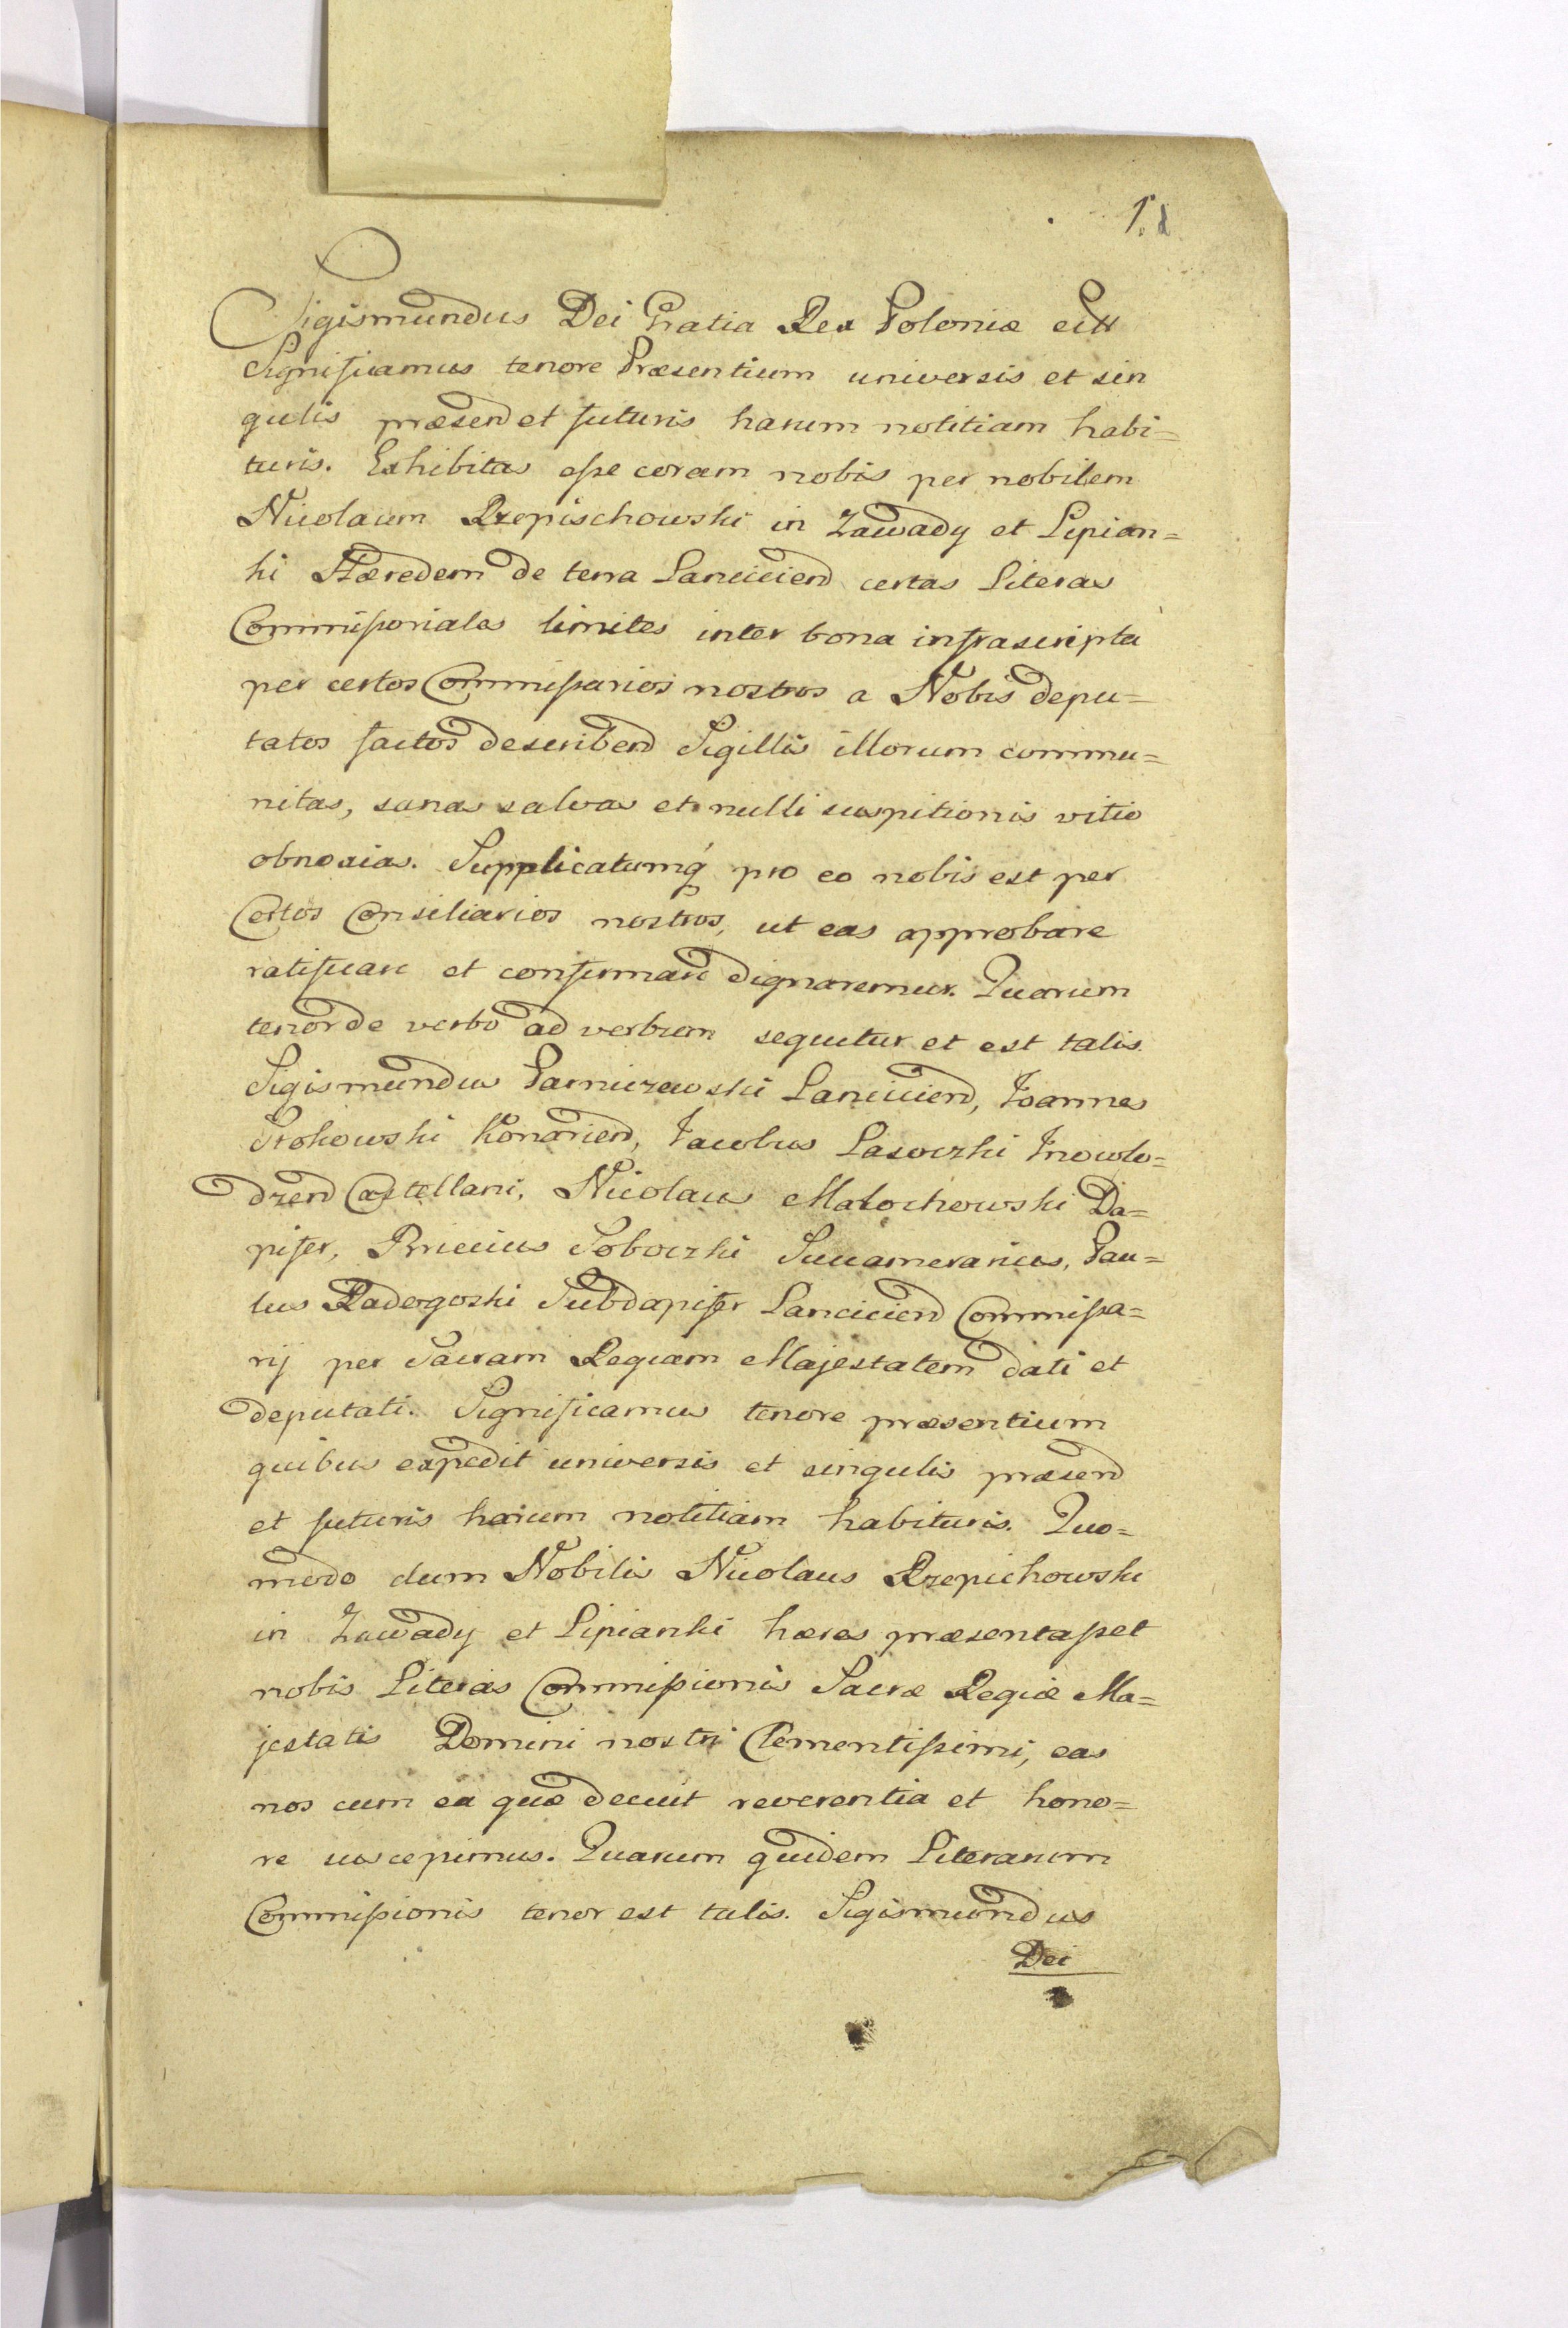 1.
Sigismundus Dei Gratia Rex Poloniæ ett
Significamus tenore Præsentium universis et sin
gulis præsend et futuris harum notitiam habi=
turis. Exhibitas eſse coram nobis per nobilem
Nicolaum Rzepischowski in Zawady et Lipian=
ki Hæredem de terra Lanciciend certas Literas
Commiſsoriales limites inter bona infrascripta
per certos Commiſsarios nostros a Nobis depu=
tatos factos describend Sigillis illorum commu=
nitas, sanas salvas et nulli suspitionis vitio
obnoxias. Supplicatumq́ pro eo nobis est per
Certos Consiliarios nostros, ut eas approbare
ratificare et confirmare dignaremur. Quarum
tenor de verbo ad verbum sequitur et est talis.
Sigismundus Parniczewski Lanciciend, Joannes
Srokowski Konariend, Jacobus Lasoczki Inowlo=
dzend Castellani, Nicolaus Malochowski Da=
pifer, Briccius Soboczki Succamerarius, Pau=
lus Radogoski Subdapifer Lanciciend Commiſsa=
rij per Sacram Regiam Majestatem dati et
deputati. Significamus tenore præsentium
quibus expedit universis et singulis præsend
et futuris harum notitiam habituris. Quo=
modo dum Nobilis Nicolaus Rzepichowski
in Zawady et Lipianki hæres præsentaſset
nobis Literas Commiſsionis Sacræ Regiæ Ma=
jestatis Domini nostri Clementiſsimi, eas
nos cum ea quæ decuit reverentia et hono=
re suscepimus. Quarum quidem Literarum
Commiſsionis tenor est talis. Sigismundus
Dei